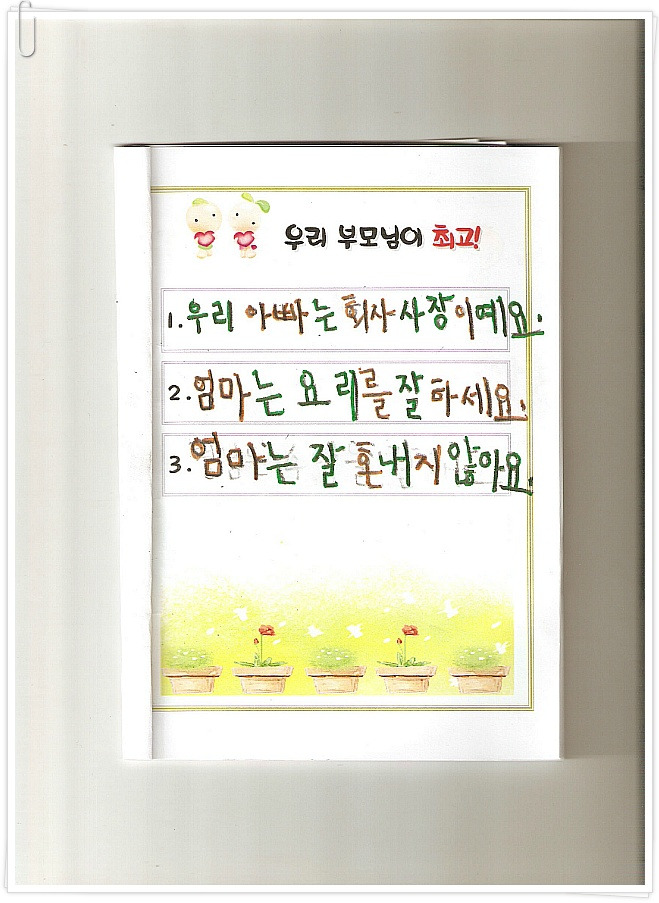 우리 부모님이 최고!
1. 우리 아빠는 회사 사장이예요.
2. 엄마는 요리를 잘 하세요.
3. 엄마는 잘 혼내지 않아요.